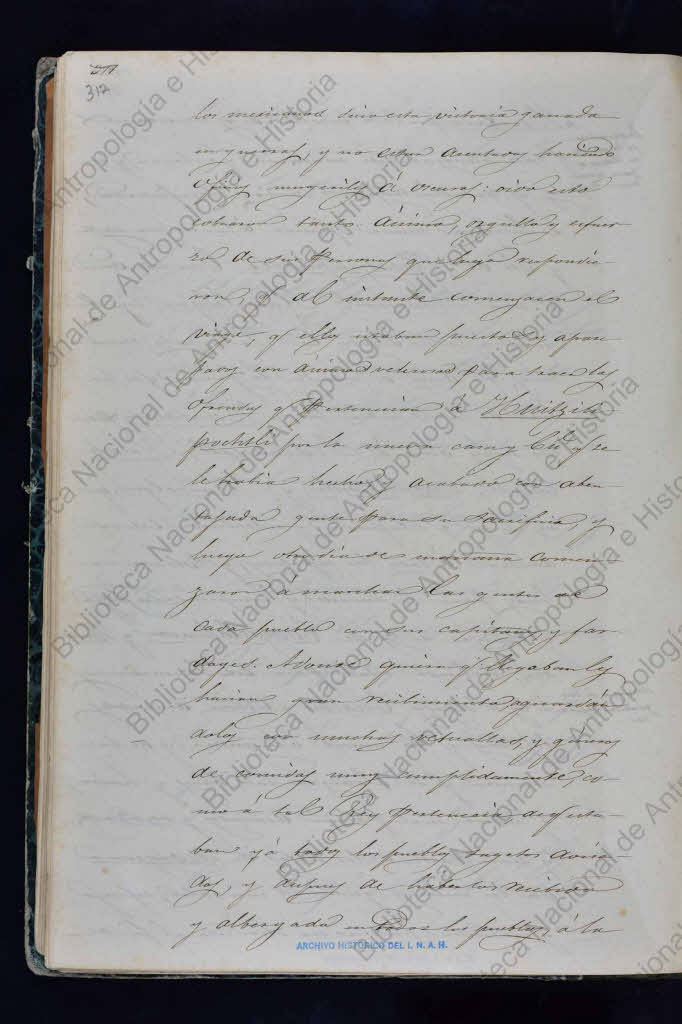 312
los mexicanos sino esta victoria ganada
en guerras, y no estar asentados haciendo
oficios mugeriles á oscuras: oido esto
cobraron tanto ánimo, orgullo y esfuer-
zo de sus Personas que luego respondie-
ron, q al instante comenzasen el
viaje, q ellos estaban prestos y apare-
jados con ánimo para traer las
ofrendas q Pertenecian á Huitzilo-
pochtli por la nueva casa y Cú q se
le habia hecho y acabado con aben-
tajada gente para su sacrificio, y
luego otro dia de mañana comen-
zaron á marchar las gentes de
cada pueblo con sus capitanes y far-
dages. Adonde quiera q llegaban les
hacian gran recibimiento aguardan-
dolos con muchas vituallas, y generos
de comidas muy cumplidamente, co-
mo á tal Rey pertenecia de q esta-
ban yá todos los pueblos sugetos avisa-
dos, y despues de haberlos recibido
y albergado en todos los pueblos, á la
ARCHIVO HISTÓRICO DEL I. N. A. H.
Biblioteca Nacional de Antropología e Historia